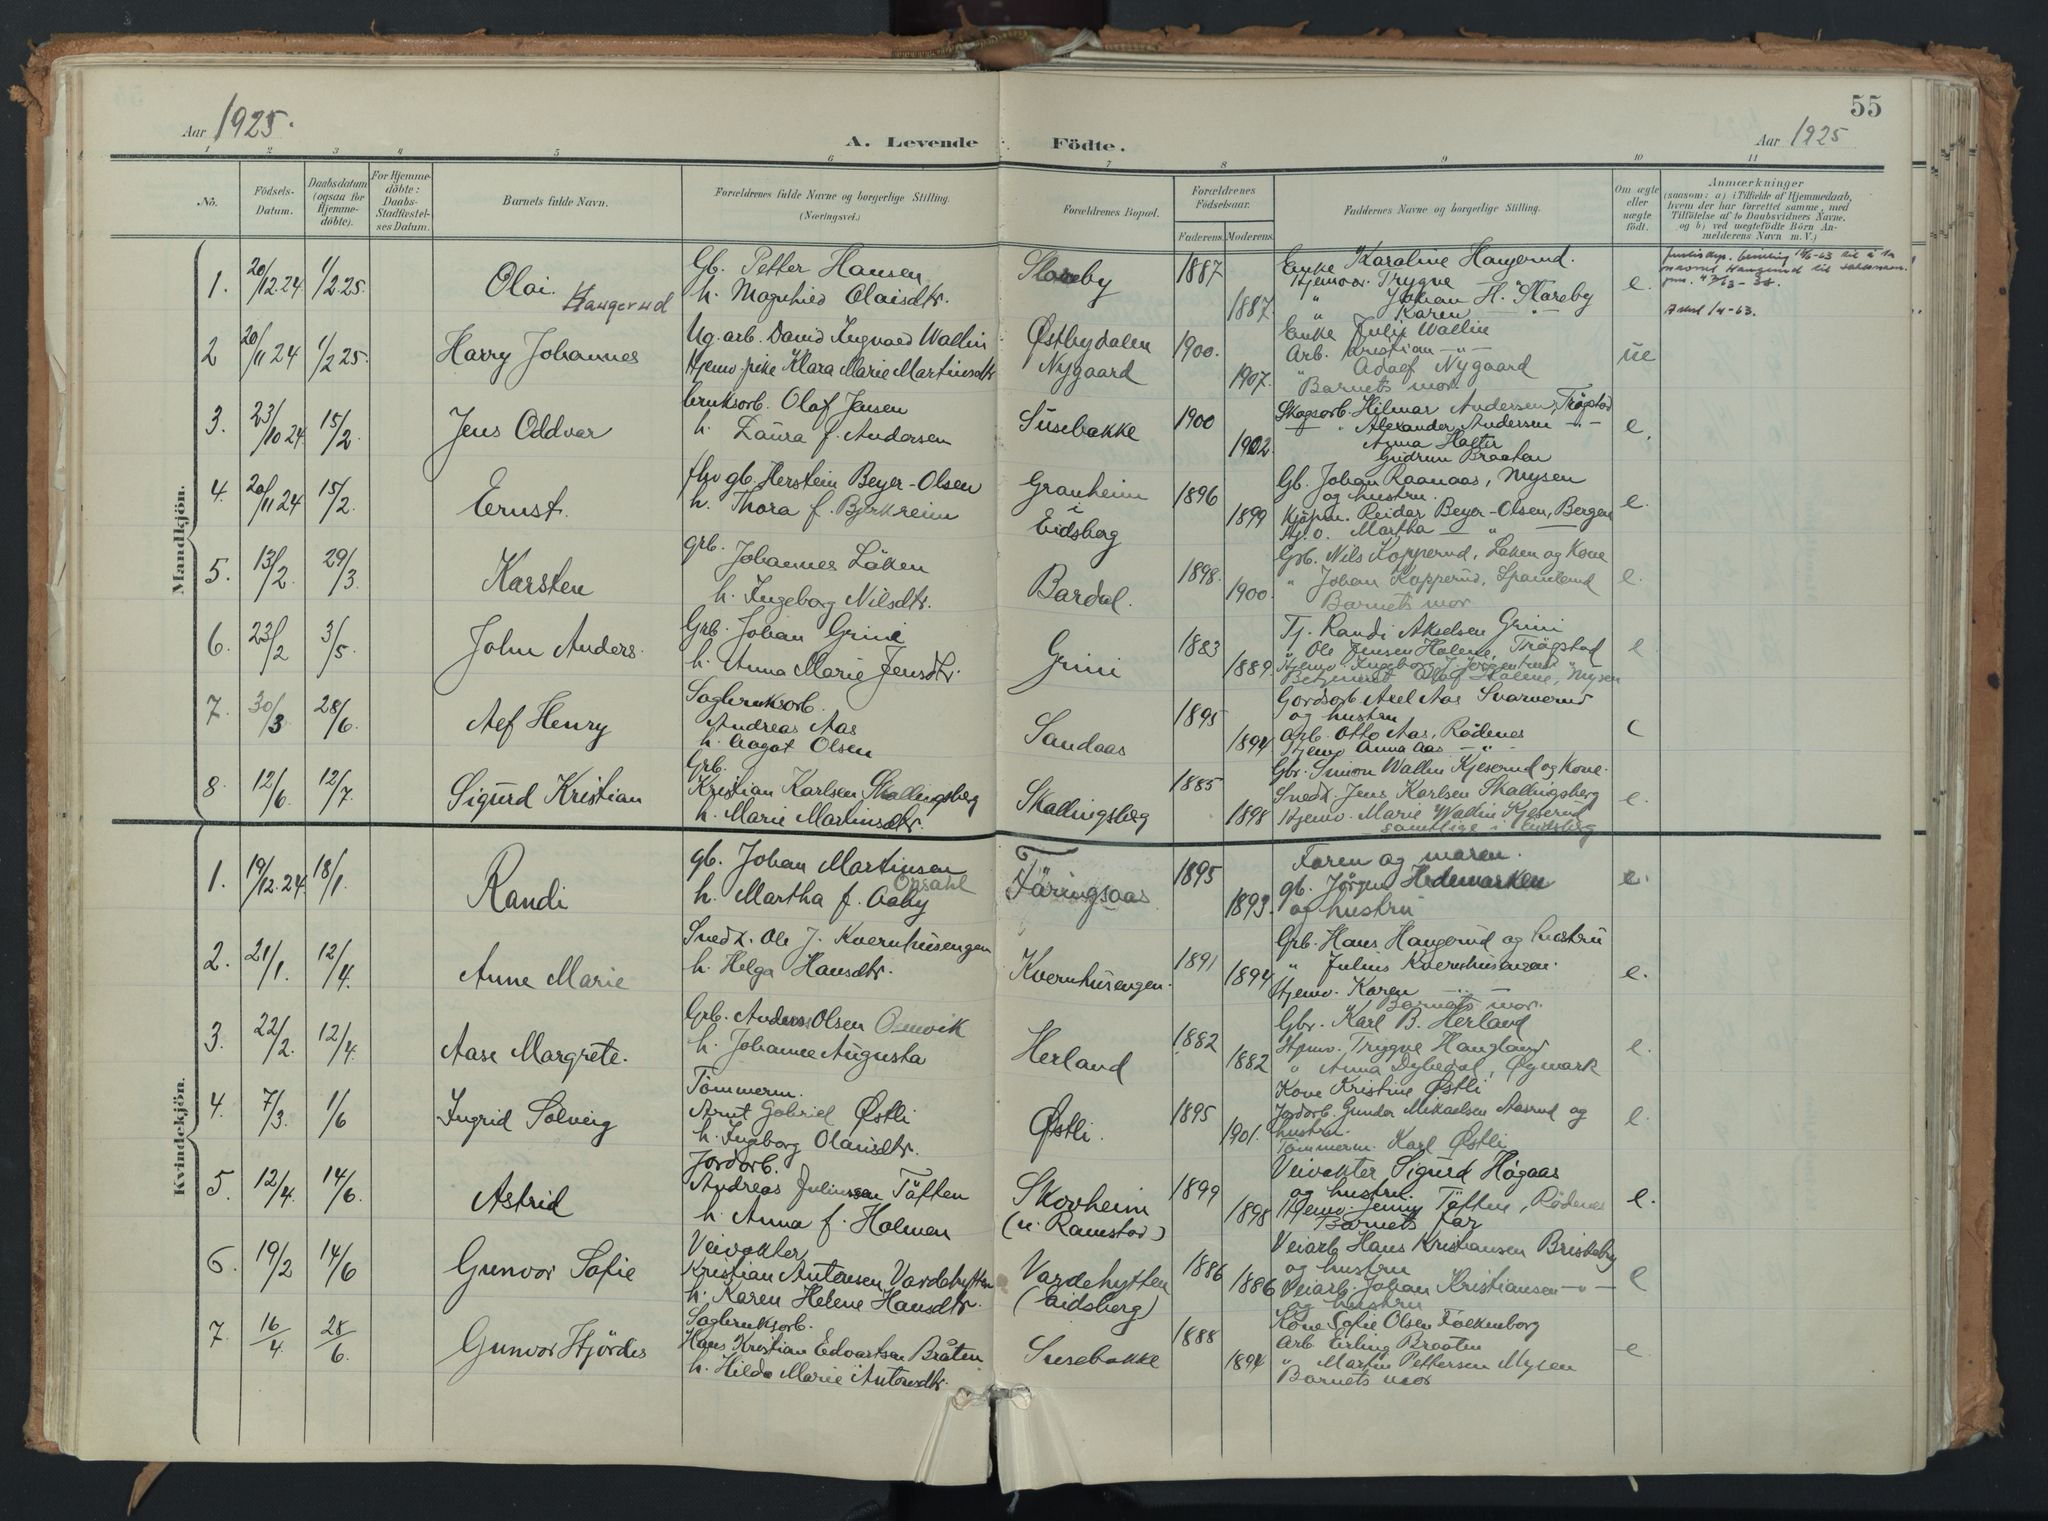 55
Aar 1925.
A. Levende Födte.
Aar 1925
1 2 3 4 5 6 7 8 9 10 11
No.
Födsels-Datum.
Daabsdatum (ogsaa for Hjemme-döbte).
For Hjemme-döbte: Daabs-Stadfæstel-ses Datum.
Barnets fulde Navn.
Forældrenes fulde Navne og borgerlige Stilling.
(Næringsvei.)
Forældrenes Bopæl.
Forældrenes Födselsaar.
Faderens. Moderens.
Faddernes Navne og borgerlige Stilling.
Om ægte eller uægte födt.
Anmærkninger
(saasom: a) i Tilfælde af Hjemmedaab,
hvem der har forrettet samme, med
Tilföielse af to Daabsvidners Navne,
og b) ved uægtefödte Börn An-
melderens Navn m. V.)
Mandkjön.
1. 20/12.24 1/2.25. Olai. Haugerud
Gb. Petter Hansen
h. Magnhild Olaisdtr.
Sloreby 1887 1887.
Enke Karoline Haugerud.
Hjemv. Trygve
" Johan H. Storeby
" Karen — " —
e.
2 20/11 24 1/2 25. Harry Johannes
Ug. arb. David Ingvald Wallin
Hjemv. pike Klara Marie Martinsdtr
Østbydalen
Nygaard
1900. 1907.
Enke Julie Wallin
Arb. Kristian — " —
" Adolf Nygaard
Barnets mor.
ue
3. 23/10 24 15/2. Jens Oddvar
bruksarb. Olaf Jensen
h. Laura f. Andersen
Susebakke 1900 1902.
Skogsarb. Hilmar Andersen, Trøgstad
" Alexander Andersen — " —
Anna Halter
Gudrun Braaten
e.
4. 20/11 24 15/2. Ernst.
fhv gb. Herstein Beyer-Olsen
h. Thora f. Bjerkreim
Granheim
i
Eidsberg
1896 1899
Gb. Johan Raanaas, Mysen
og hustru.
Kjøpm. Reidar Beyer-Olsen, Bergen
Hj.v. Martha — "
e.
5. 13/2. 29/3. Karsten
grb. Johannes Løken
h. Ingeborg Nilsdtr.
Bardal. 1898. 1900.
Grb. Nils Kopperud, Løken og Kone
" Johan Kopperud,
Barnets mor
e.
6. 23/2 3/5. John Anders.
Grb. Johan Grini
h. Anna Marie Jensdtr.
Grini 1883 1889.
Tj. Randi Akselsen Grini
" Ole Jensen Holene, Trøgstad
Hjemv. Ingeborg
Olaf Holene, Mysen
e
7. 30/3 28/6. Alf Henry
Sagbruksarb.
Andreas Aas
h. Aagot Olsen
Sandaas 1895 1894
Gordsarb Axel Aas Svarverud
og hustru
Arb. Otto Aas, Rødenes
Hjemv Anna Aas — " —
e
8. 12/6. 12/7. Sigurd Kristian
Grb.
Kristian Karlsen Skallingsberg
h. Marie Martinsdtr.
Skallingsberg 1885 1898
Gbr. Simon Wallin Kjeserud og Kone.
Snedk. Jens Karlsen Skallingsberg
Hjemv. Marie Wallin Kjeserud
samtlige i Eidsberg
e.
Kvindekjön.
1. 19/12.24 18/1. Randi
gb. Johan Martinsen
Opsahl
h. Martha f. Aaby
Färingsaas 1895 1893.
Faren og moren.
gb. Jørgen Hedemarken
og hustru
e.
2. 21/1. 12/4. Anne Marie
Snedk. Ole J. Kvernhusengen
h. Helga Hansdtr.
Kvernhusengen. 1891 1894
Grb. Hans Haugerud og hustru
" Julius Kvernhusengen.
Hjemv. Karen — " —
Barnets mor.
e.
3. 22/2. 12/4. Aase Margrete.
Grb. Anders Olsen
h. Johanne Augusta
Herland 1882 1882
Gbr. Karl B. Herland
Hjemv. Trygve Haugland
" Anna Dybedal, Øymark
e.
4. 7/3. 1/6 Ingrid Solveig
Tømmerm.
Arnt Gabriel Østli
h. Ingborg Olausdtr.
Østli. 1895 1901.
Kone Kristine Østli
Jordarb. Gunder Mikaelsen Aasrud og
hustru.
Tømmerm. Karl Østli
e.
5. 12/4. 14/6. Astrid
Jordarb.
Andreas Juliussen Täften
h. Anna f. Holmen
Skovheim
(u. Ramstad)
1899 1898
Veivokter Sigurd Høgaas
og hustru
Hjemv. Jenny Täften, Rødenes
Barnets far
e.
6. 19/2 14/6 Gunvor Sofie
Veivokter
Kristian Antonsen Vardehytten
h. Karen Helene Hansdtr.
Vardehytten
(Eidsberg)
1886 1886
Veiarb Hans Kristiansen Bristeby
og hustru
Veiarb. Johan Kristiansen — " —
og hustru
e
7. 16/4. 28/6. Gunvor Hjördis
Sagbruksarb.
Hans Kristian Edvartsen Bråten
h. Hilda Marie Antonsdtr.
Susebakke 1888 1894
Kone Sofie Olsen Folkenborg
Arb Erling Braaten
" Martin Pettersen Mysen
Barnets mor
e